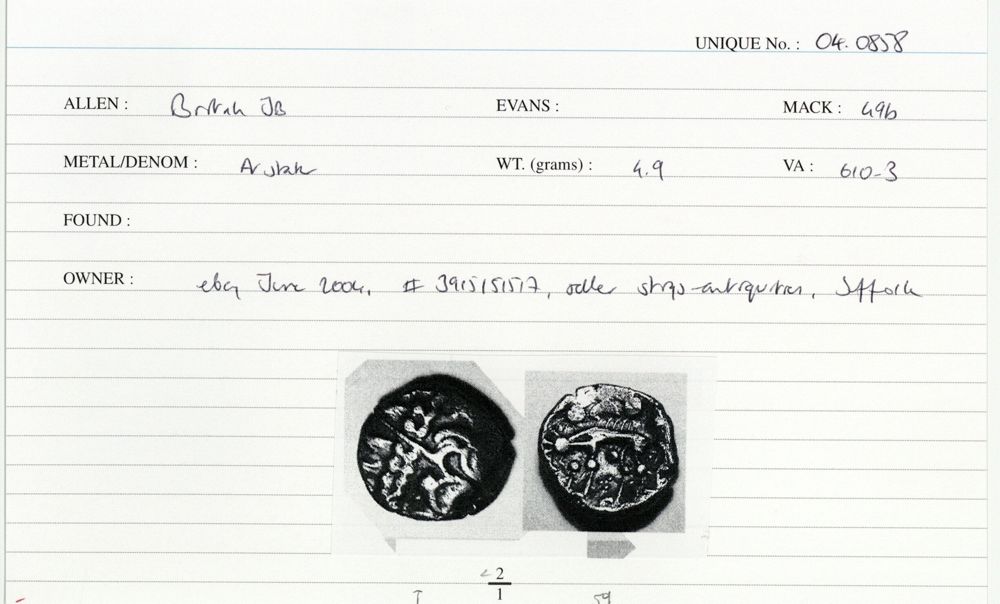 UNIQUE No. : 04.0858
ALLEN : British JB EVANS : MACK : 49b
METAL/DENOM : AV stater WT. (grams) : 4.9 VA : 610-3
FOUND :
OWNER : ebay June 2004, # 3915151517, seller strps-antiquities, Suffolk
2
1